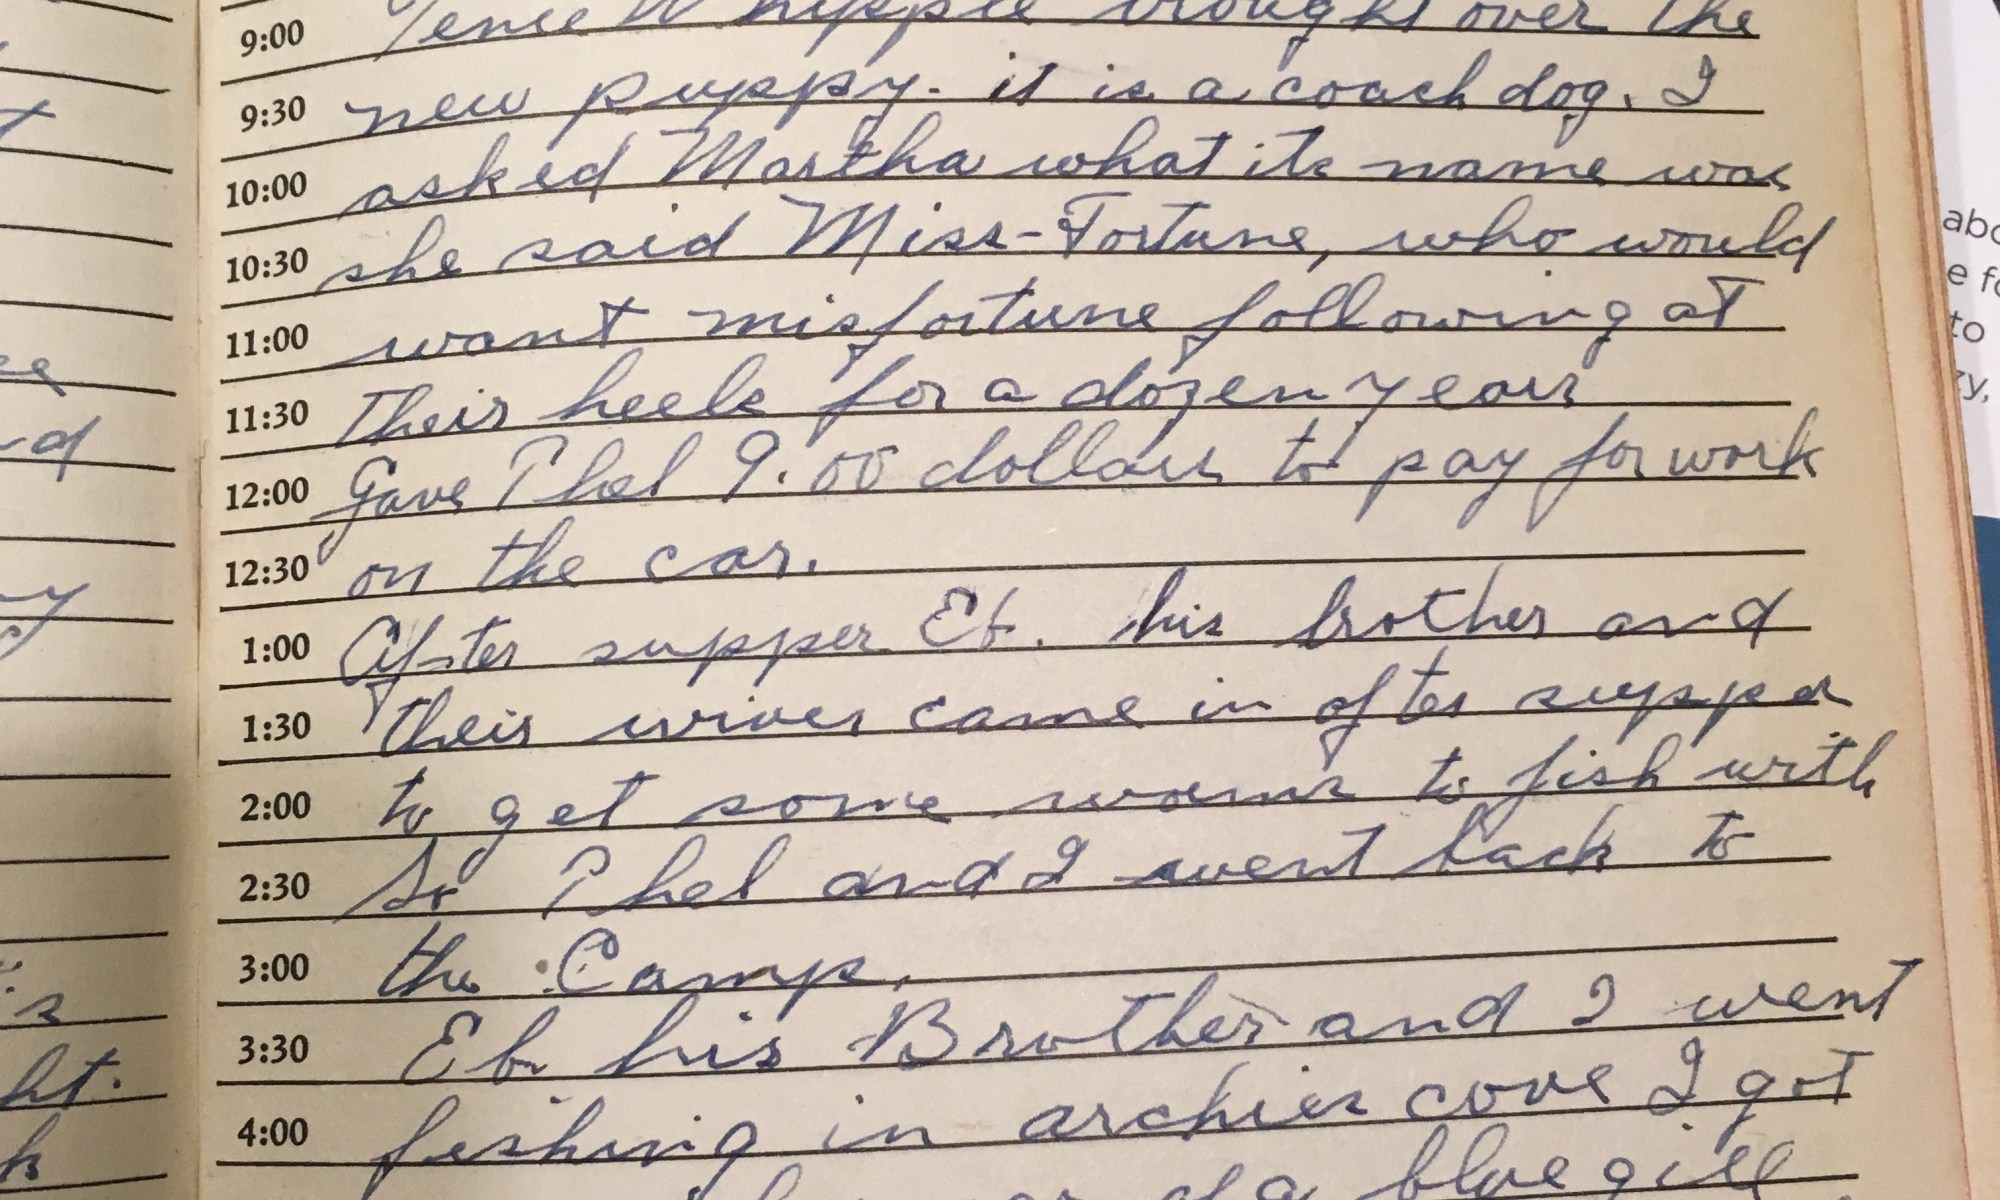 9:00 Whipple brought over the
9:30 new puppy. it is a coach dog. I
10:00 asked Martha what its name was
10:30 she said Miss-Fortune, who would
11:00 want misfortune following at
11:30 their heels for a dozen years
12:00 Gave Phel 9.00 dollars to pay for work
12:30 on the car.
1:00 After supper Eb. his brother and
1:30 their wives came in after supper
2:00 to get some worms to fish with
2:30 So Phel and I went back to
3:00 the Camp.
3:30 Eb his Brother and I went
4:00 fishing in archies cove I got
of a blue gill